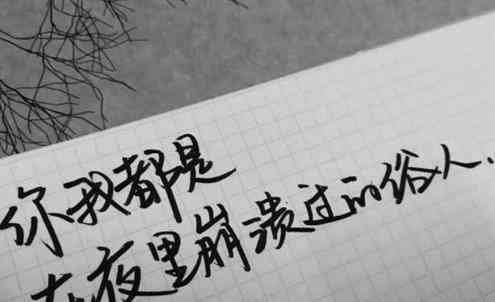 你我都是
在夜里崩溃过的俗人.